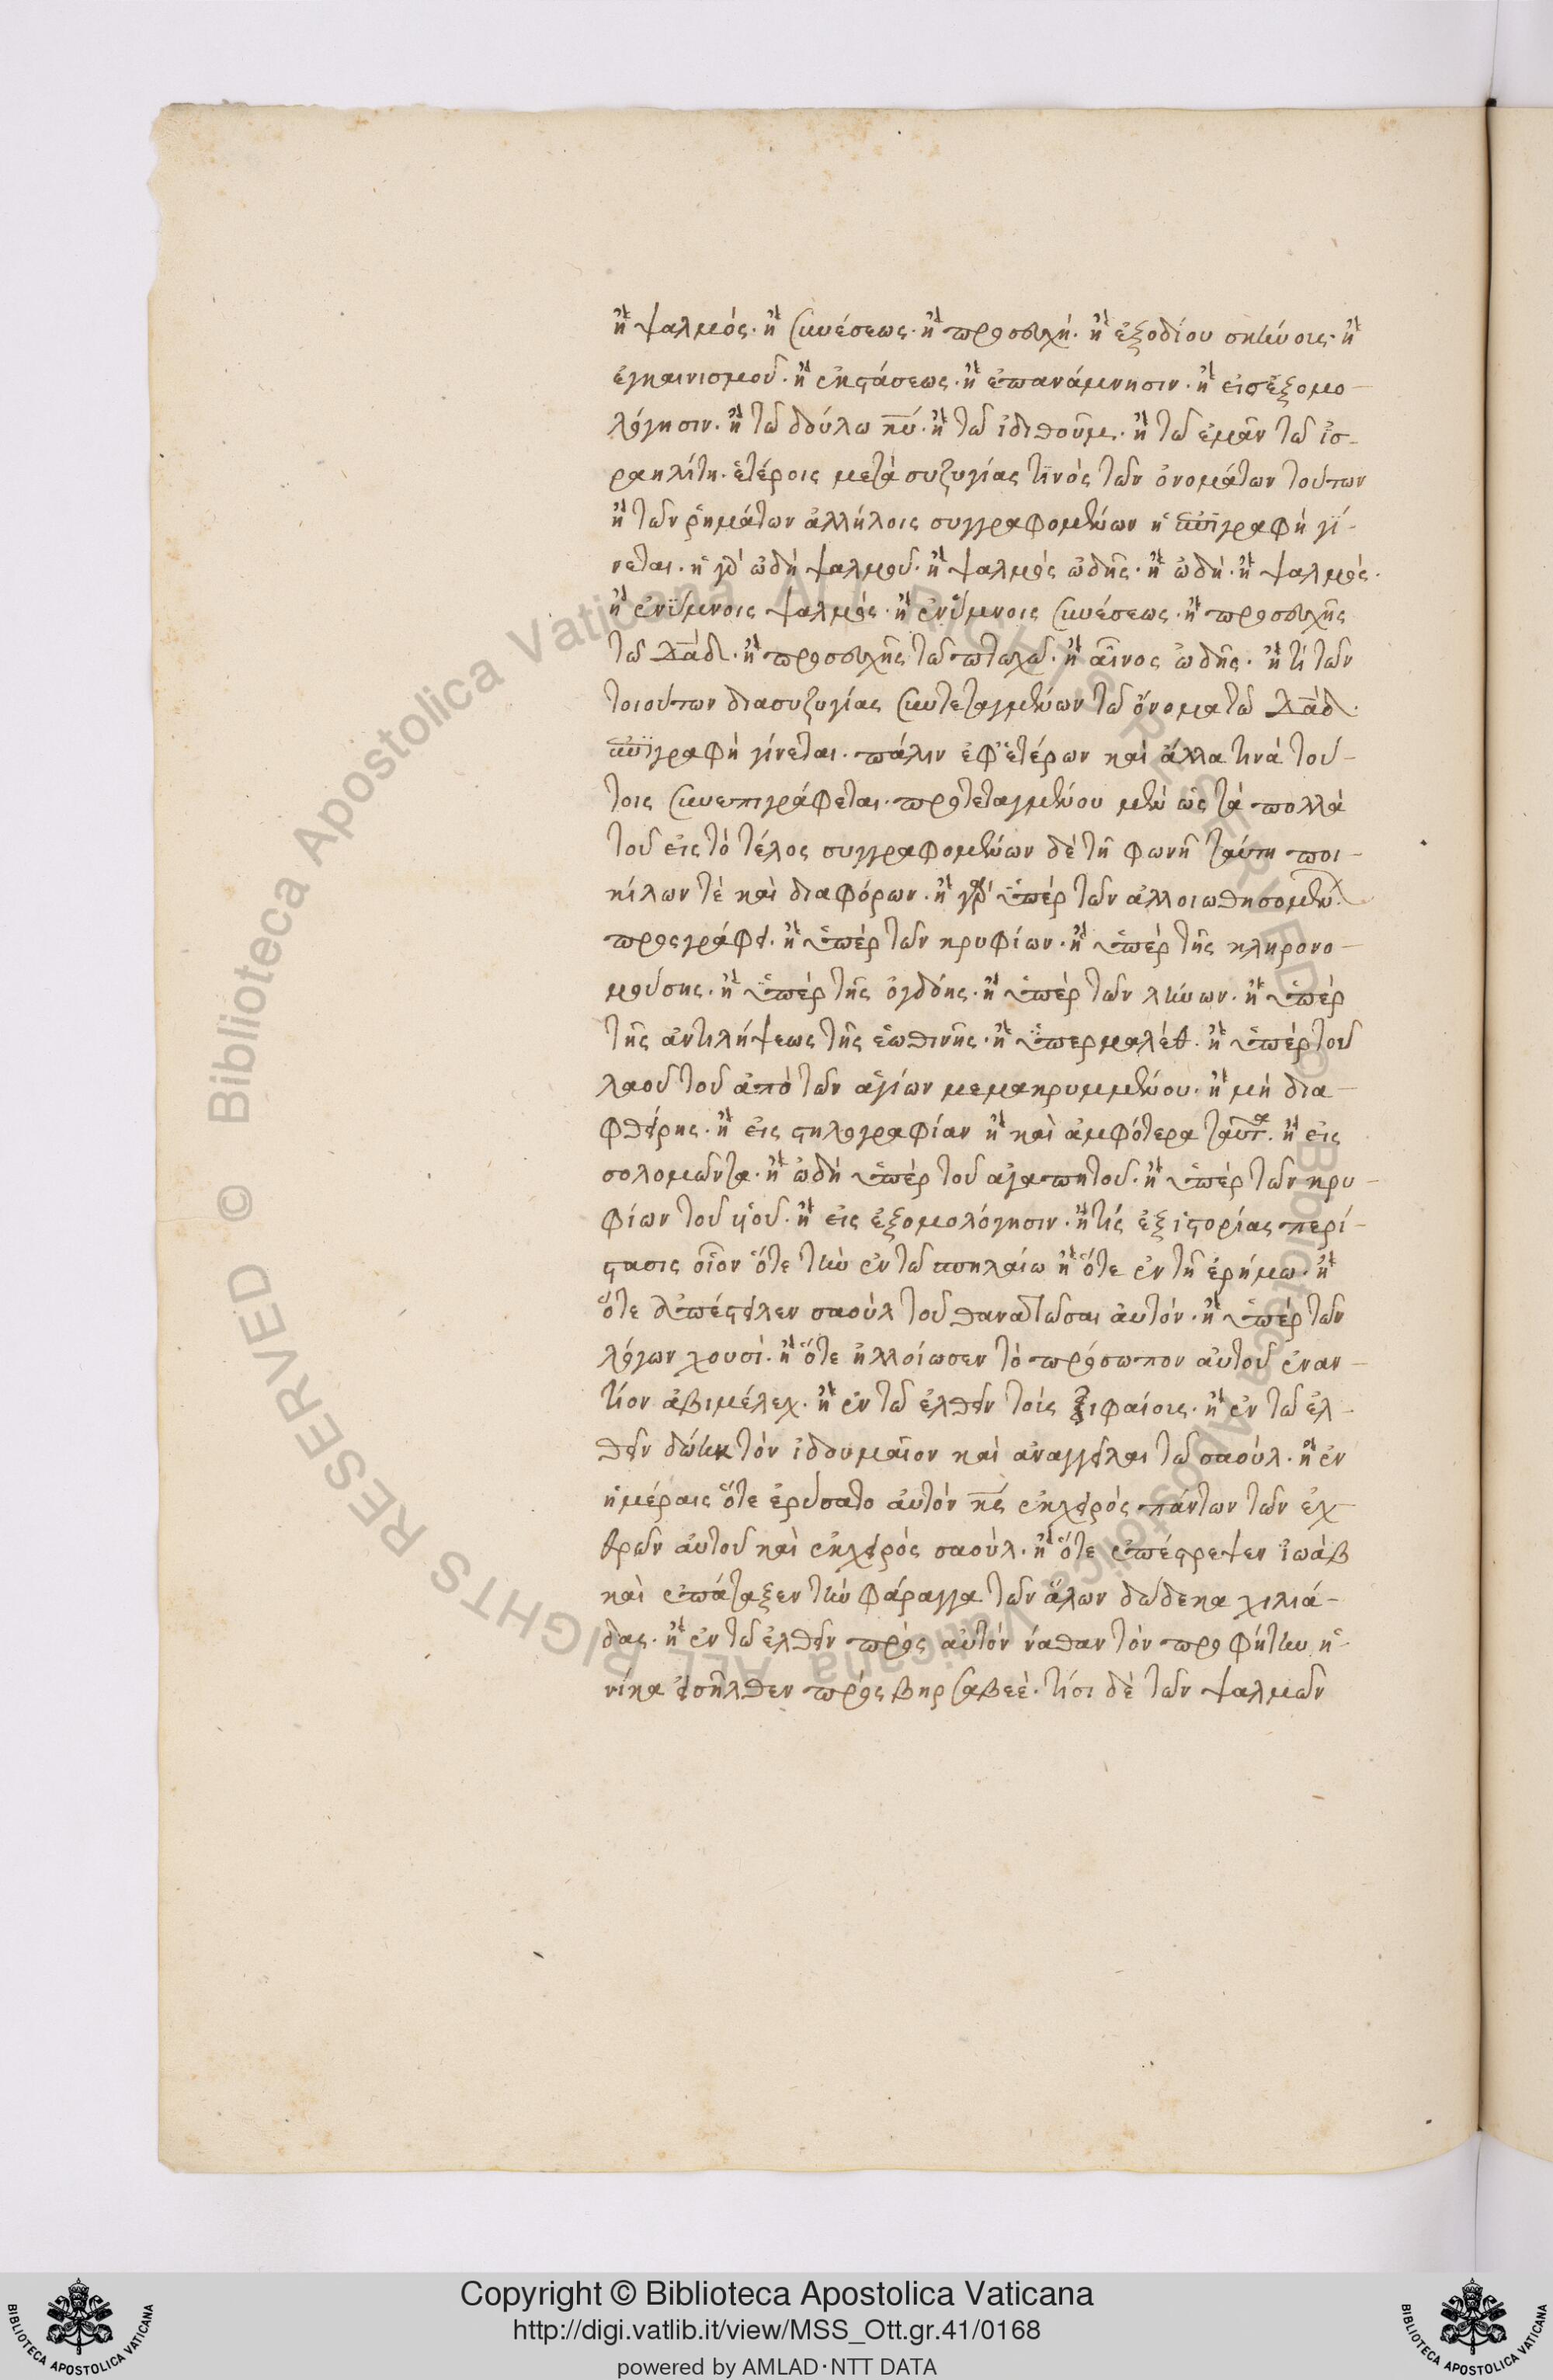 ἢ ψαλμός· ἢ συνέσεως· ἢ προσευχή· ἢ ἐξοδίου σκηνοις· ἢ
ἐγκαινισμοῦ· ἢ ἐκστάσεως· ἢ ἐπανάμνησιν· ἢ εἰσἐξομο-
λόγησιν· ἢ τῶ δούλω κυ· ἢ τῶ ἰδιθοῦμ· ἢ τῶ ἐμᾶν τῶ ἰσ-
ραηλίτη· ἑτέροις μετὰ συζυγίας τινὸς τῶν ὀνομάτων τούτων
ἢ τῶν ῥημάτων ἀλλήλοις συγγραφομένων ἡ ἐπιγραφὴ γί-
νεται· ἢ γὰρ ὠδὴ ψαλμοῦ· ἢ ψαλμὸς ὠδῆς· ἢ ὠδὴ· ἢ ψαλμὸς·
ἢ ἐνὕμνοις ψαλμός· ἢ ἐνὕμνοις συνέσεως· ἢ προσευχῆς
τῶ δαδ· ἢ προσευχῆς τῶ πτωχῶ· ἢ αἶνος ὠδῆς· ἢ τί τῶν
τοιούτων διασυζυγίας συντεταγμένων τῶ ὄνοματῶ δαδ·
ἐπιγραφὴ γίνεται· πάλιν ἐφ' ἑτέρων καὶ ἄλλα τινὰ τού-
τοις συνεπιγράφεται· προτεταγμένου μὲν ὡς τὰ πολλὰ
τοῦ εἰς τὸ τέλος συγγραφομένων δὲ τῆ φωνῆ ταύτη ποι-
κίλων τὲ καὶ διαφόρων· ἢ γὰρ ὑπὲρ τῶν ἀλλοιωθησομέν
προςγράφει· ἢ ὑπὲρ τῶν κρυφίων· ἢ ὑπὲρ τῆς κληρονο-
μούσης· ἢ ὑπὲρ τῆς ὀγδόης· ἢ ὑπὲρ τῶν ληνων· ἢ ὑπὲρ
τῆς ἀντιλήψεως τῆς ἑωθινῆς· ἢ ὑπερμαλέθ· ἢ ὑπὲρ τοῦ
λαοῦ τοῦ ἀπὸ τῶν ἁγίων μεμακρυμμένου· ἢ μὴ δια-
φθείρης· ἢ εἰς στηλογραφίαν ἢ καὶ ἀμφότερα ταῦτα· ἢ εἰς
σολομῶντα· ἢ ὠδὴ ὑπὲρ τοῦ ἀγαπητοῦ· ἢ ὑπὲρ τῶν κρυ-
φίων τοῦ υἱοῦ· ἢ εἰς ἐξομολόγησιν· ἢ τίς ἐξ ἱστορίας περί-
στασις οἷον ὅτε τὴν ἐν τῶ σπηλαίω ἢ ὅτε ἐν τῆ ἐρήμω· ἢ
ὅτε ἀπέστειλεν σαοὺλ τοῦ θανατῶσαι ἀυτόν· ἢ ὑπὲρ τῶν
λόγων χουσί· ἢ ὅτε ἠλλοίωσεν τὸ πρόσωπον αὐτοῦ ἐναν-
τίον ἀβιμέλεχ· ἢ ἐν τῶ ἐλθεῖν τοὶς ξιφαίοις· ἢ ἐν τῶ ἐλ-
θεῖν δώηκ τὸν ἰδουμαῖον καὶ ἀναγγεῖλαι τῶ σαούλ· ἢ ἐν
ἡμέραις ὅτε ἐρύσατο ἀυτὸν κς ἐκχειρὸς πάντων τῶν ἐχ-
θρῶν ἀυτοῦ καὶ ἐκχειρὸς σαούλ· ἢ ὅτε ἐπέστρεψεν ἰωὰβ
καὶ ἐπάταξεν τὴν φάραγγα τῶν ἁλων δώδεκα χιλιά-
δας· ἢ ἐν τῶ ἐλθεῖν πρὸς αὐτὸν νάθαν τὸν προφήτην ἡ-
νίκα εἰσῆλθεν πρὸς βηρσαβεέ· τίσι δὲ τῶν ψαλμῶν
© Biblioteca Apostolica Vaticana ALL RIGHTS RESERVED
© Biblioteca Apostolica Vaticana ALL RIGHTS RESERVED
Copyright © Biblioteca Apostolica Vaticana
http://digi.vatlib.it/view/MSS_Ott.gr.41/0168
powered by AMLAD·NTT DATA
BIBLIOTECA APOSTOLICA VATICANA
BIBLIOTECA APOSTOLICA VATICANA